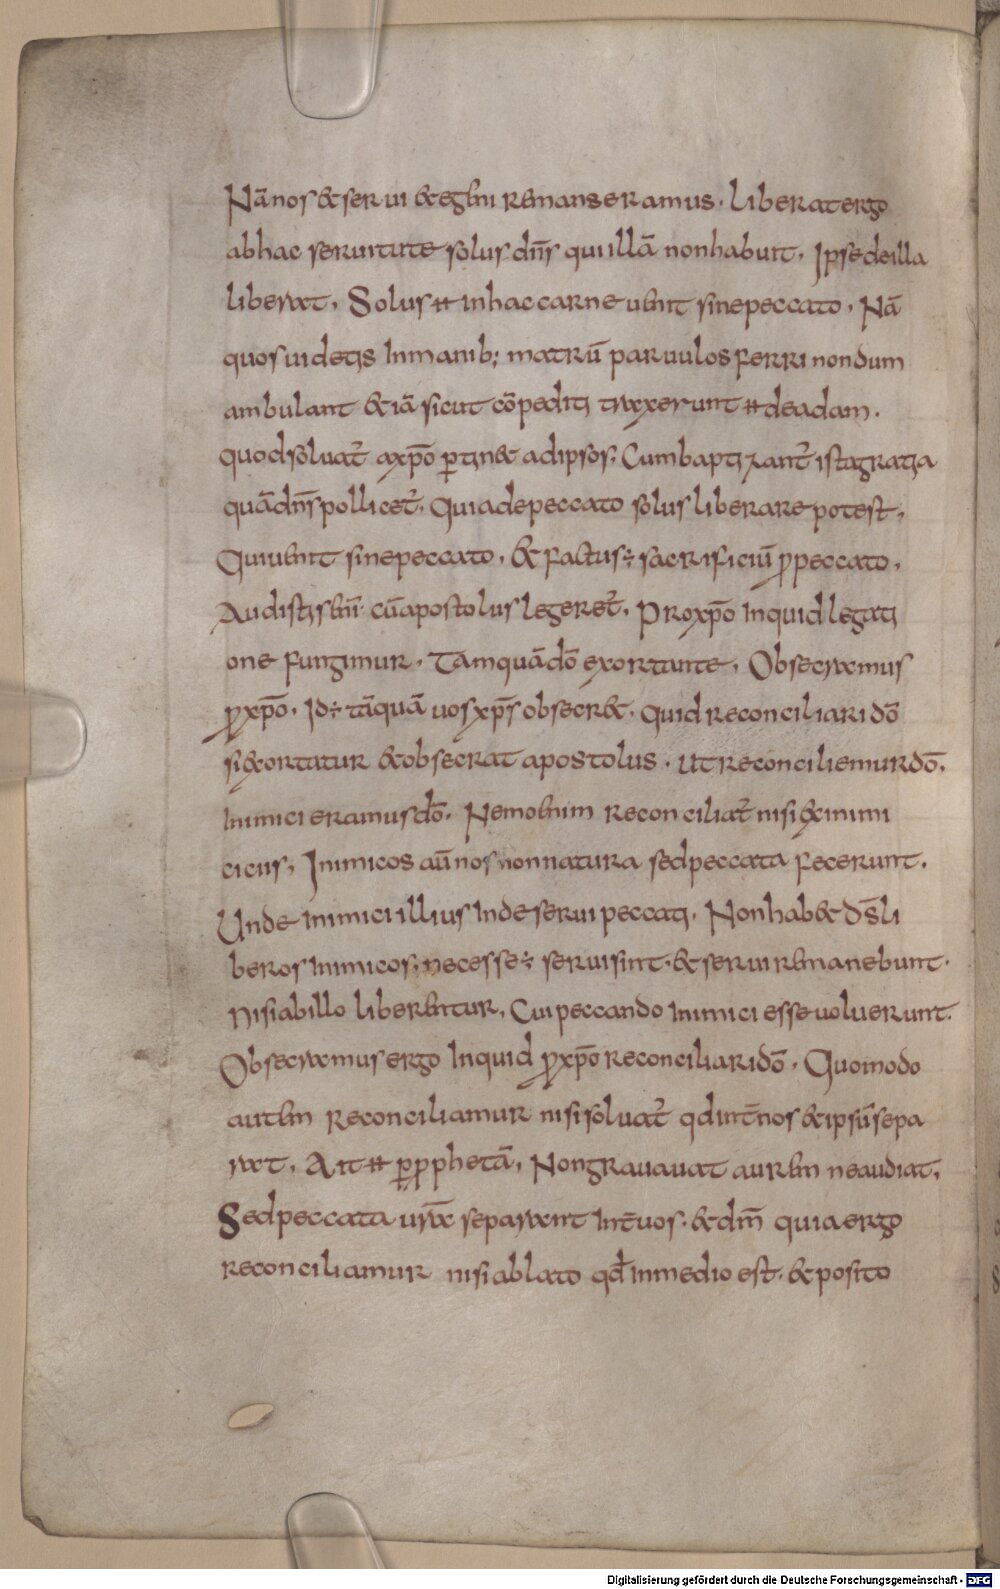 Nā nos & serui & egēni remanseramus. Liberat ergo
ab hac seruitute solus dn̄s qui illā non habuit. Ipse de illa
liberat. Solus ⁊ in hac carne uenit sine peccato. Nā
quos uidetis In manib; matrū paruulos ferri nondum
ambulant & iā sicut cōpediti traxerunt ⁊ de adam.
quod soluat̄ a xp̄o ꝑtin& ad ipsos. Cum baptizant̄ ista gratia
quā dn̄s pollicet̄. Quia de peccato solus liberare potest.
Qui uenit sine peccato. & factus ÷ sacrificiū ꝓ peccato.
Audistis enī cū apostolus legeret̄. Pro xp̄o Inquid legati
one fungimur. Tamquā dō exortante. Obsecramus
ꝓ xp̄o. Id ÷ tāquā uos xp̄s obsecr&. quid reconciliari dō
si &ortatur & obsecrat apostolus. ut reconciliemur dō.
Inimici eramus dō. Nemo enim reconciliat̄ nisi ex inimi
ciciis. Inimicos aū nos non natura sed peccata fecerunt.
Unde Inimici illius Inde serui peccati. Non hab& ds̄ li
beros Inimicos. necesse ÷ serui sint. & serui remanebunt.
Nisi ab illo liberentur. Cui peccando Inimici esse uoluerunt.
Obsecramus ergo Inquid ꝓ xp̄o reconciliari dō. Quomodo
autem reconciliamur nisi soluat̄ qd int̄ nos & ipsū sepa
rat. Ait ⁊ ꝑ ꝓphetā. Non gravavat aurem ne audiat.
Sed peccata ur̄a separant Int̄ uos. & dm̄ quia ergo
reconciliamur nisi ablato qđ In medio est. & posito
Digitalisierung gefördert durch die Deutsche Forschungsgemeinschaft - DFG